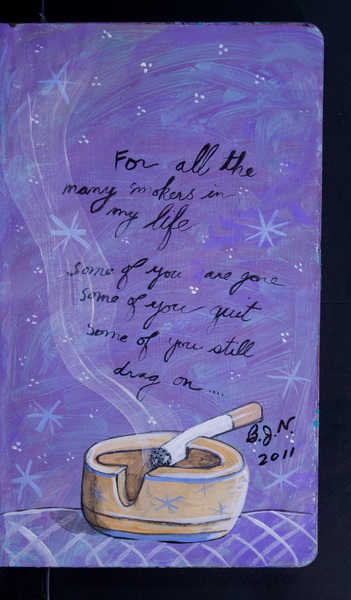 For all the
many smokers in
my life
some of you are gone
some of you quit
some of you still
drag on....
B.J.N.
2011